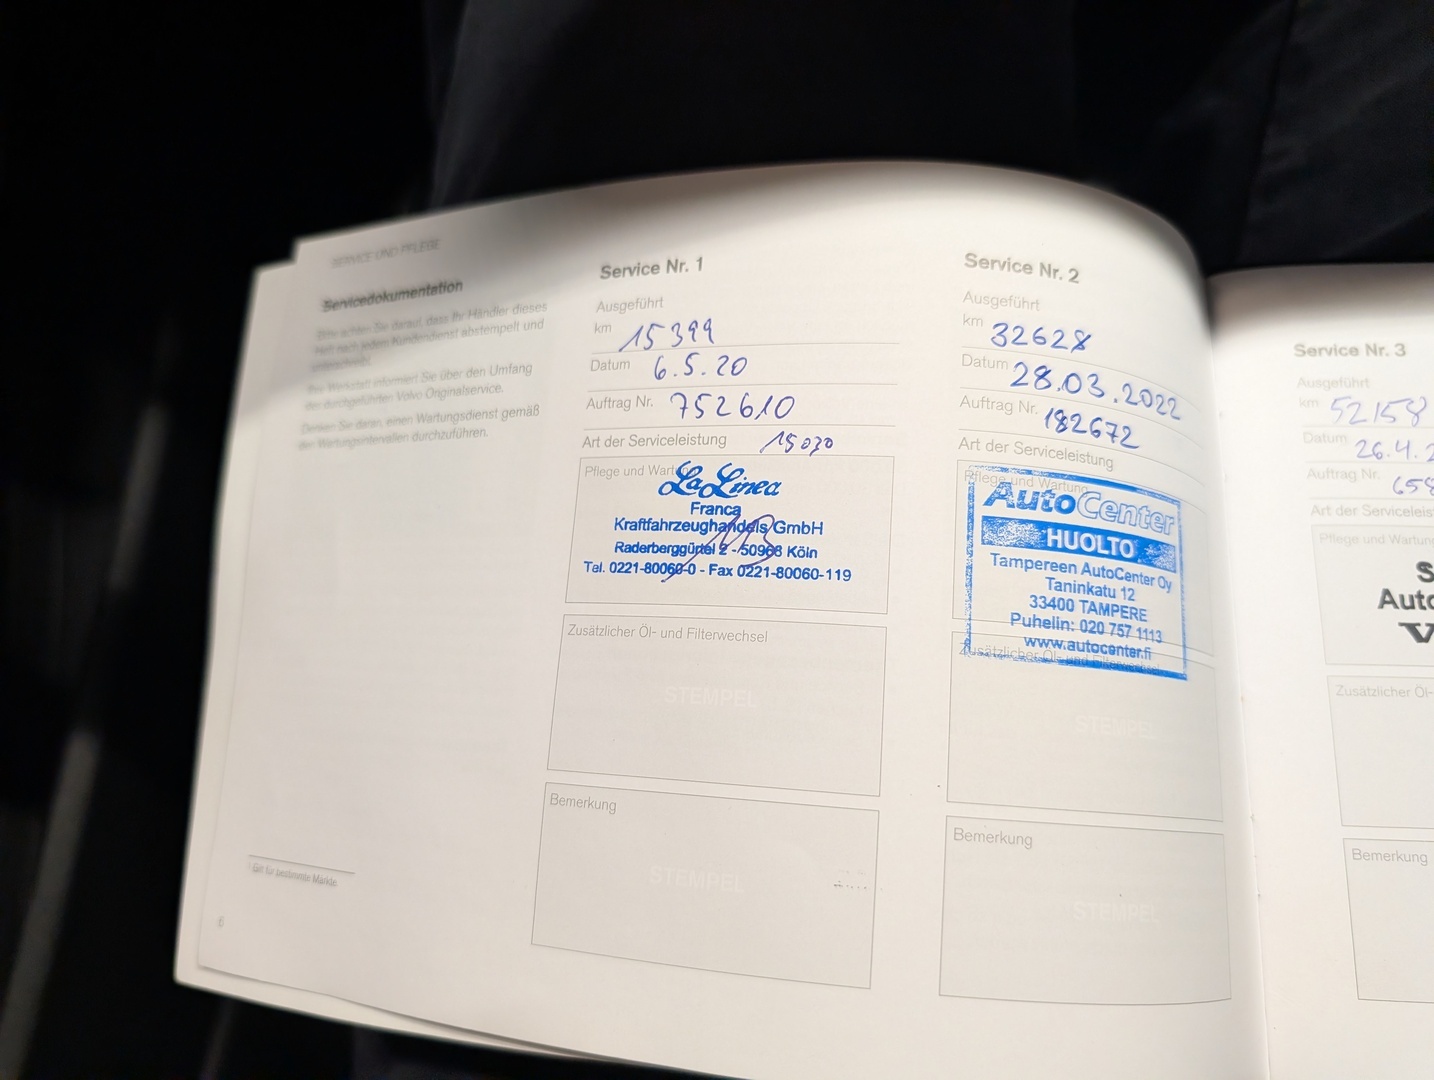 SERVICE UND PFLEGE
Servicedokumentation
Bitte achten Sie darauf, dass Ihr Händler dieses
Heft nach jedem Kundendienst abstempelt und
unterschreibt.
Ihre Werkstatt informiert Sie über den Umfang
der durchgeführten Volvo Originalservice.
Denken Sie daran, einen Wartungsdienst gemäß
den Wartungsintervallen durchzuführen.
Gilt für bestimmte Märkte.
6
Service Nr. 1
Ausgeführt
km 15399
Datum 6.5.20
Auftrag Nr. 752610
Art der Serviceleistung 15030
Pflege und Wartung
La Linea
Franca
Kraftfahrzeughandels GmbH
Raderberggürtel 2 - 50968 Köln
Tel. 0221-80060-0 - Fax 0221-80060-119
Zusätzlicher Öl- und Filterwechsel
STEMPEL
Bemerkung
STEMPEL
Service Nr. 2
Ausgeführt
km 32628
Datum 28.03.2022
Auftrag Nr. 182672
Art der Serviceleistung
Pflege und Wartung
AutoCenter
HUOLTO
Tampereen AutoCenter Oy
Taninkatu 12
33400 TAMPERE
Puhelin: 020 757 1113
www.autocenter.fi
Zusätzlicher Öl- und Filterwechsel
STEMPEL
Bemerkung
STEMPEL
Service Nr. 3
Ausgeführt
km 52158
Datum 26.4.2
Auftrag Nr. 658
Art der Serviceleis
Pflege und Wartun
S
Auto
V
Zusätzlicher Öl-
Bemerkung